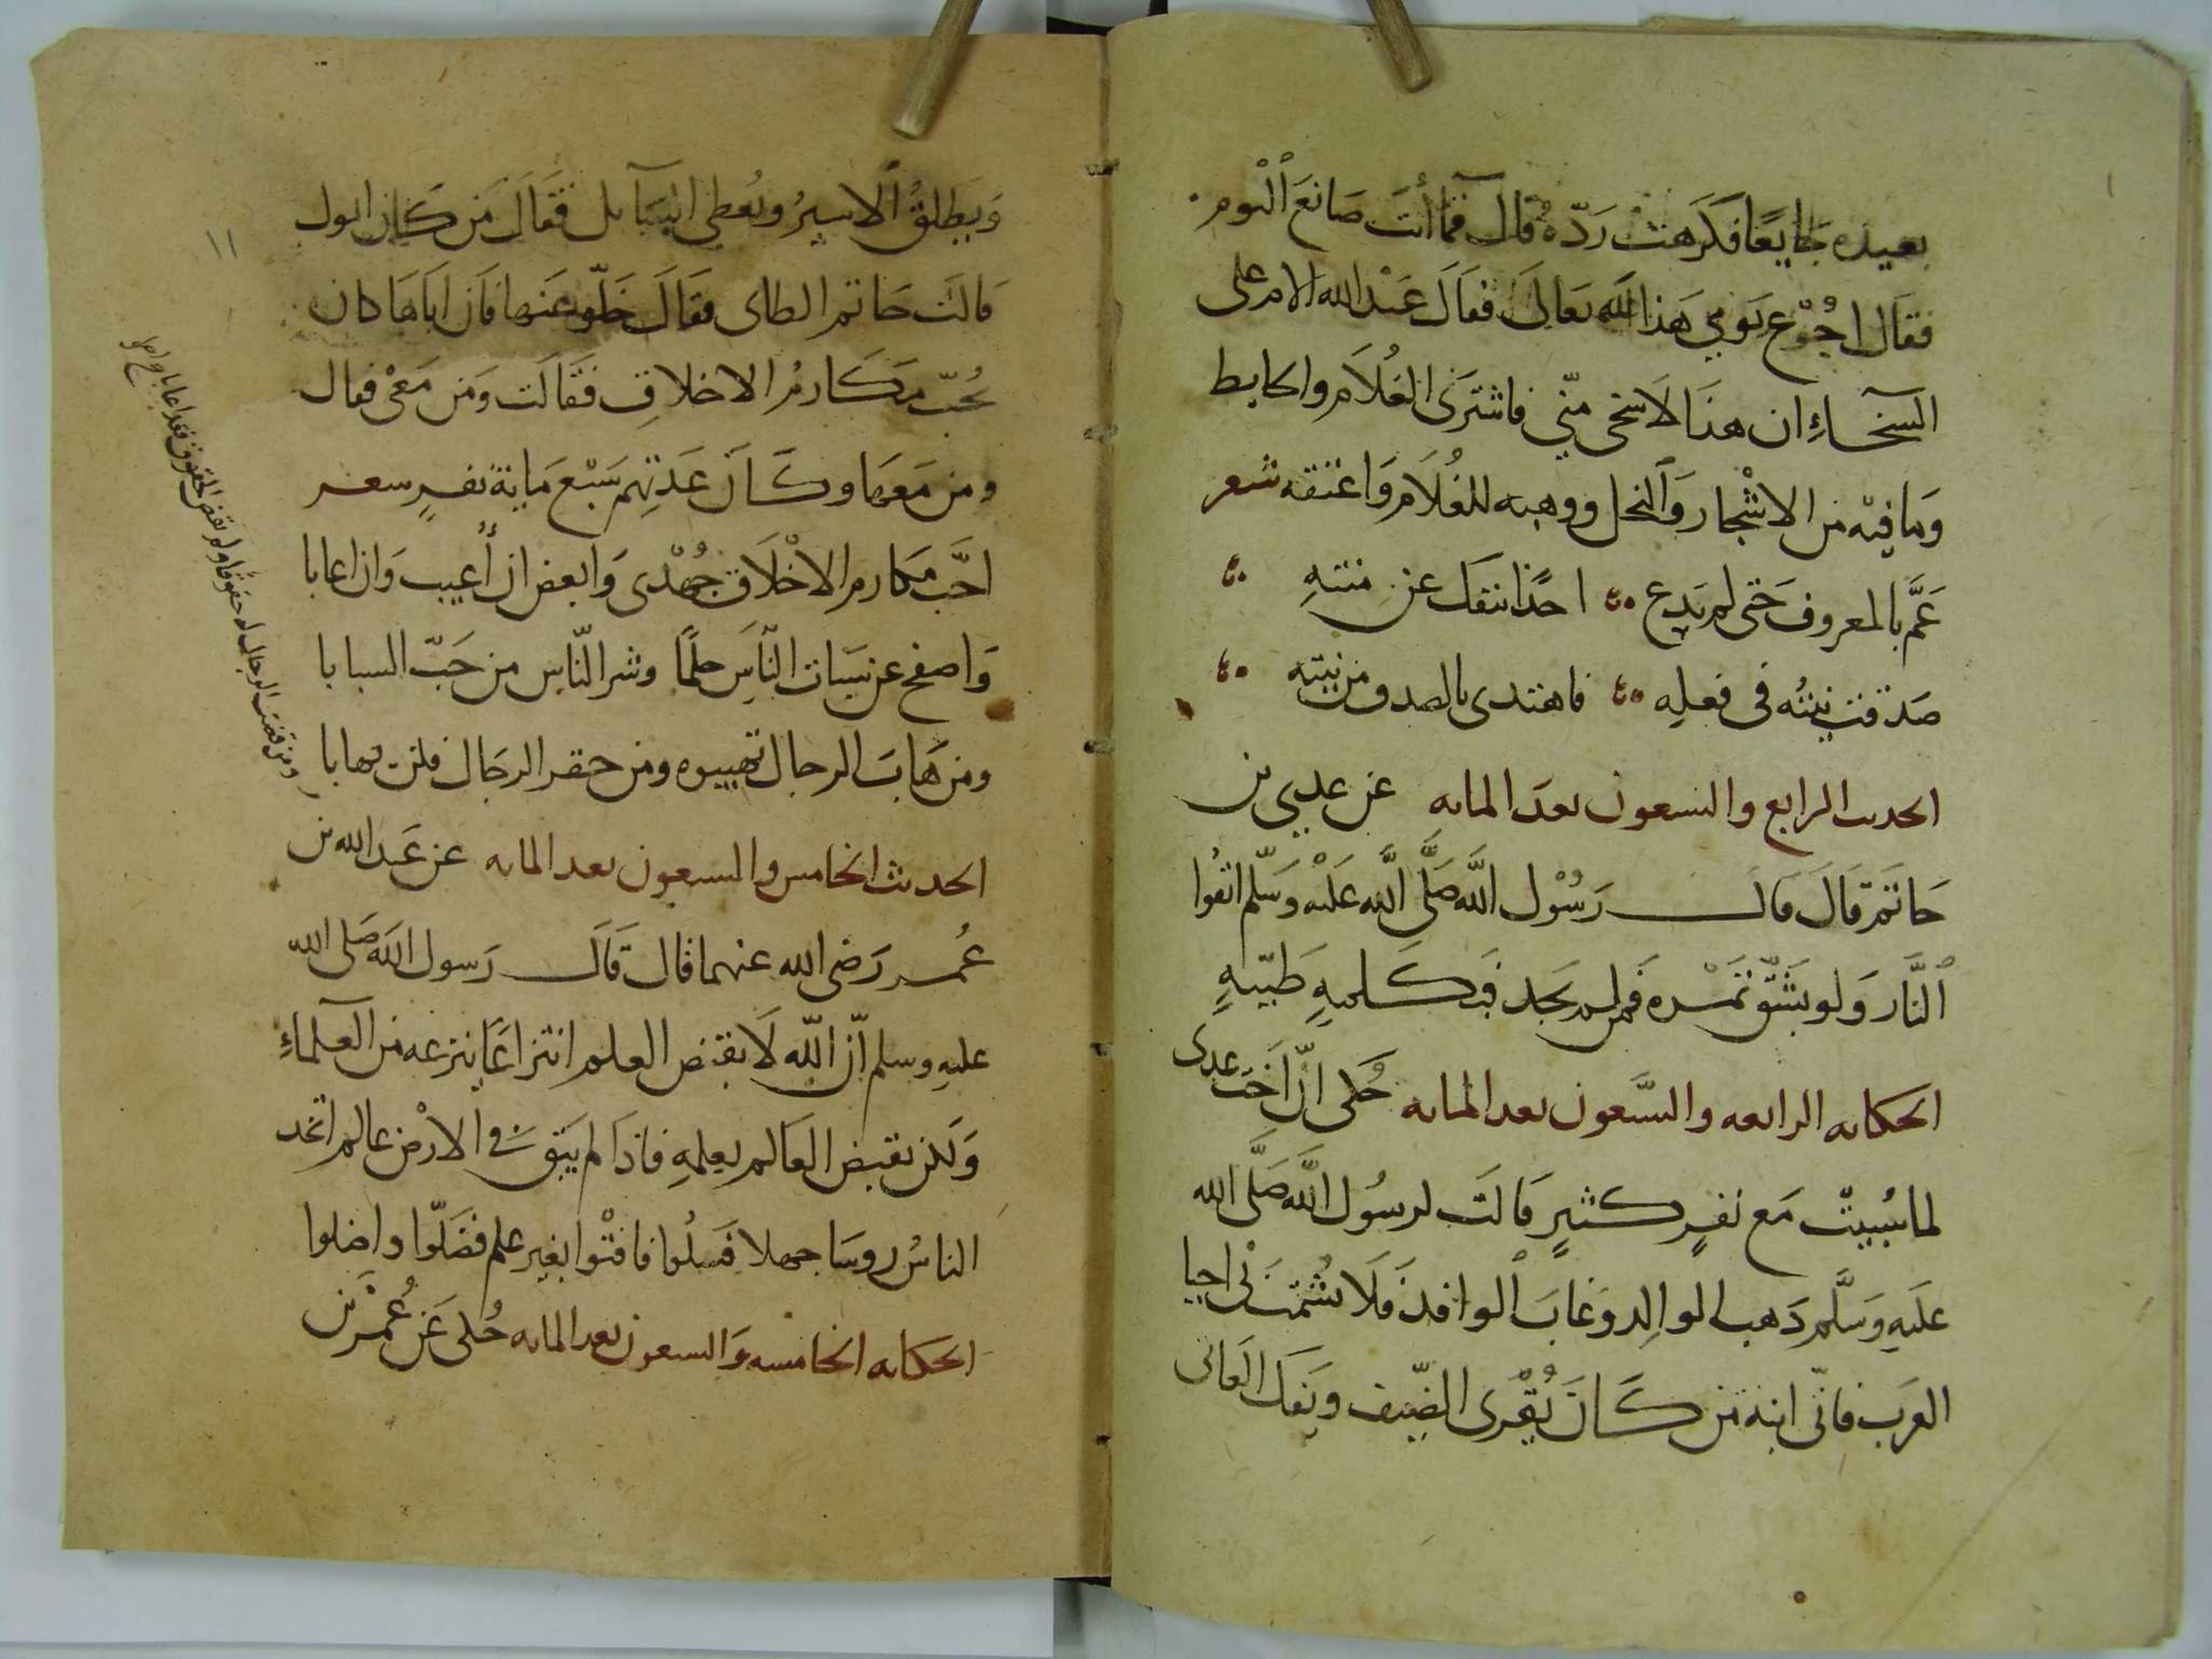 بعيده جايعًا فكرهت ردّه قال فما أنت صانع اليوم
فقال اجوع يومي هذا لله تعالى فقال عبد الله الام على
السخاءِ ان هذا لاسخى منّي فاشترى الغلام والحايط
وما فيه من الاشجار والنخل ووهبه للغلام واعتقه شعر
عمَّ بالمعروف حتى لم يدع احدًا ينفك عن منته
صدقت نيته في فعله فاهتدى بالصدق من نيته
الحديث الرابع والتسعون بعد المايه عن عدي بن
حاتم قال قال رسول الله صلى الله عليه وسلم اتقوا
النار ولو بشق تمره فمن لم يجد فبكلمهٍ طيبهٍ
الحكايه الرابعه والتسعون بعد المايه حُكى انّ اخت عدى
لما سُبيت مع نفرٍ كثيرٍ قالت لرسول الله صلى الله
عليه وسلم ذهب الوالد وغاب الوافد فلا تشمت بى احيا
العرب فانّى ابنه من كان يُقرى الضيف ويفك العانى
ويطلق الاسير ويعطى السايل فقال من كان ابوك
قالت حاتم الطاى فقال خلّو عنها فان اباها كان
يحبّ مكارم الاخلاق فقالت ومن معى فقال
ومن معها وكان عدتهم سبع ماية نفرٍ شعر
احبّ مكارم الاخلاق جهدى وابغض ان أعيب وان اعابا
واصفح عن سبات الناس حلمًا وشر الناس من حبّ السبابا
ومن هاب الرجال تهيبوه ومن حقر الرجال فلن يهابا
ومن قضت الرجال له حقوقا ولم يقض الحقوق فما اصابا
الحديث الخامس والتسعون بعد المايه عن عبد الله بن
عمر رضى الله عنهما قال قال رسول الله صلى الله
عليه وسلم انّ الله لا يقبض العلم انتزاعًا ينزعه من العلماءِ
ولكن يقبض العالم بعلمهِ فاذا لم يبق فى الارض عالم اتخد
الناس روسا جهلا فسلوا فافتوا بغير علم فضلّوا واضلوا
الحكايه الخامسه والتسعون بعد المايه حُكى عن عُمر بن
١١